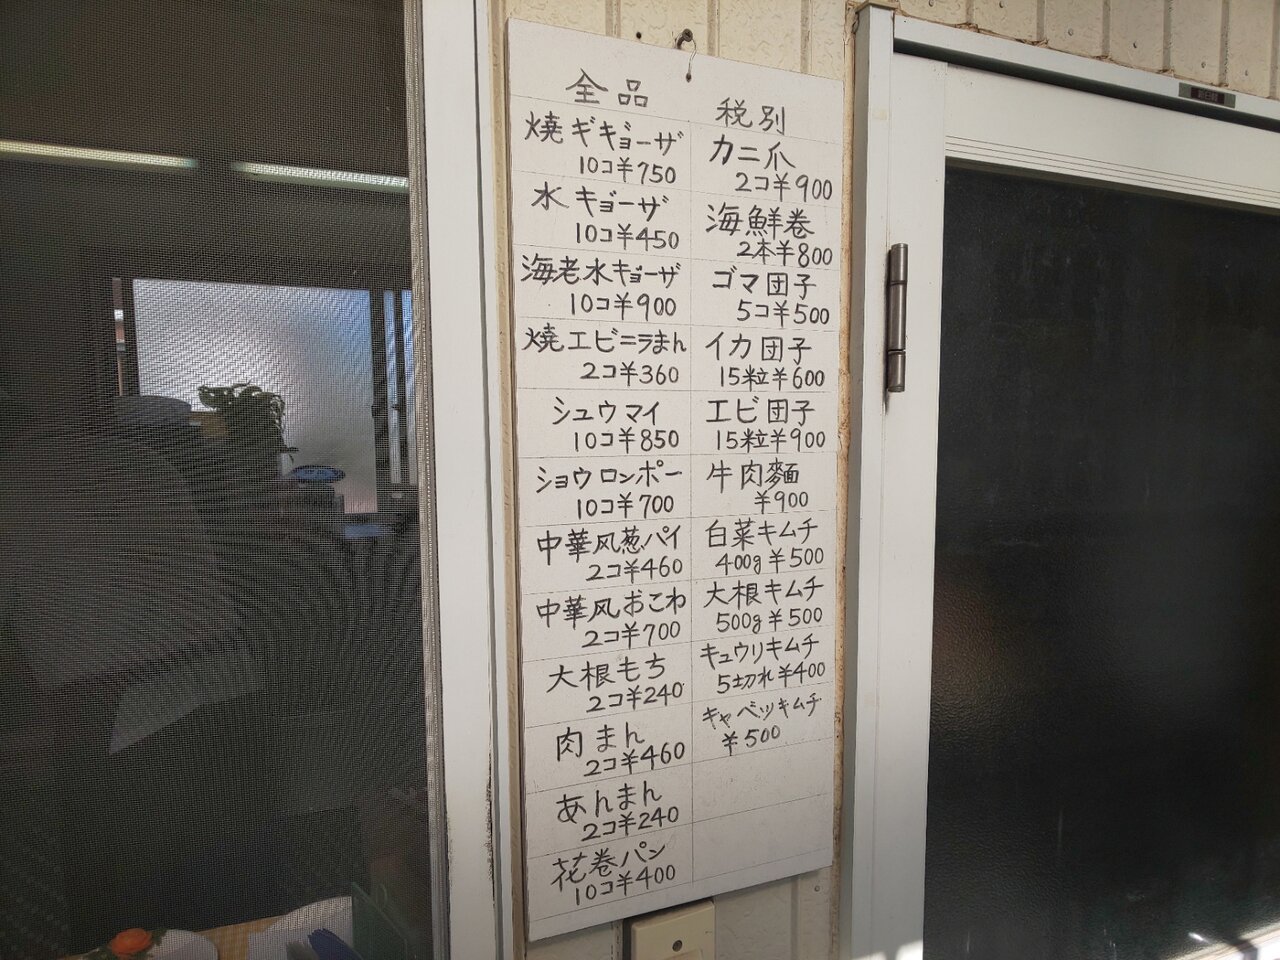 全品 税別
焼ギキョーザ
10コ¥750
水ギョーザ
10コ¥450
海老水ギョーザ
10コ¥900
焼エビニラまん
2コ¥360
シュウマイ
10コ¥850
ショウロンポー
10コ¥700
中華风葱パイ
2コ¥460
中華风おこわ
2コ¥700
大根もち
2コ¥240
肉まん
2コ¥460
あんまん
2コ¥240
花巻パン
10コ¥400
カニ爪
2コ¥900
海鮮巻
2本¥800
ゴマ団子
5コ¥500
イカ団子
15粒¥600
エビ団子
15粒¥900
牛肉麺
¥900
白菜キムチ
400g¥500
大根キムチ
500g¥500
キュウリキムチ
5切れ¥400
キャベツキムチ
¥500